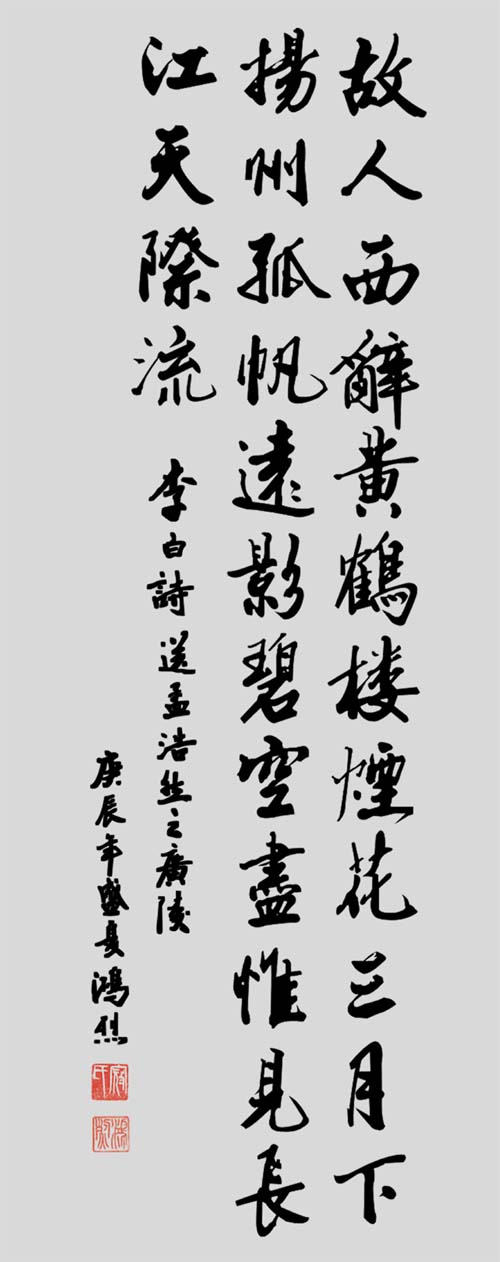 故人西辭黄鶴楼煙花三月下
揚州孤帆遠影碧空盡惟見長
江天際流
李白詩送孟浩然之廣陵
庚辰年盛夏鴻烈